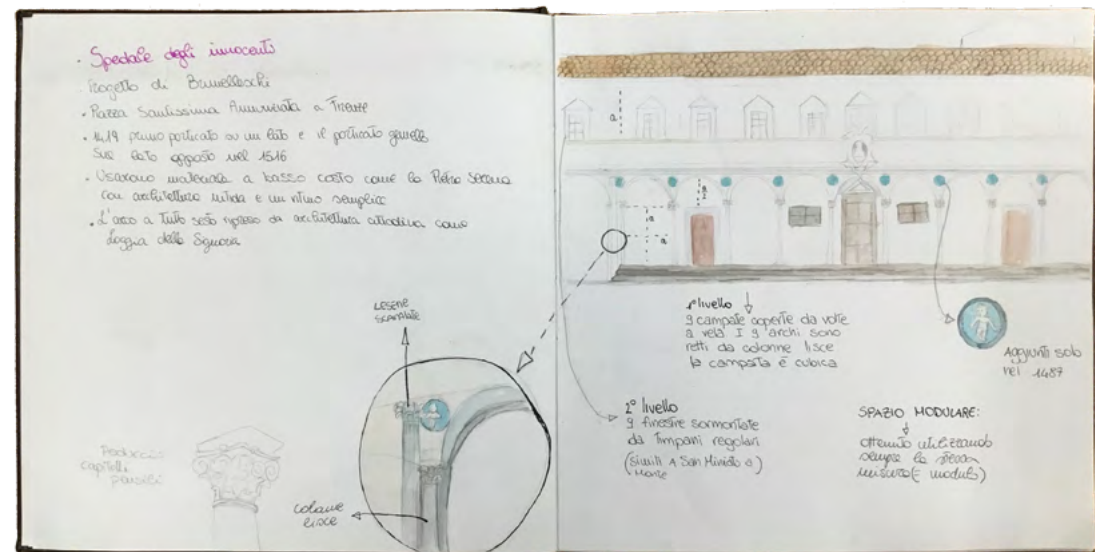 · Spedale degli innocenti
· Progetto di Brunelleschi
· Piazza Santissima Annunziata a Firenze
· 1419 primo porticato su un lato e il porticato gemello
sul lato opposto nel 1516
· Usarono materiale a basso costo come la Pietra Serena
con architettura nitida e un ritmo semplice
· L'arco a tutto sesto ripreso da architettura cittadina come
Loggia della Signoria
LESENE
SCANALATE
capitelli
colonne
lisce
a
a
2
a
a
1° livello
9 campate coperte da volte
a vela I 9 archi sono
retti da colonne lisce
la campata è cubica
Aggiunti solo
nel 1487
2° livello
9 finestre sormontate
da timpani regolari
(simili a San Miniato a)
Monte
SPAZIO MODULARE:
ottenuto utilizzando
sempre la stessa
misura (= modulo)